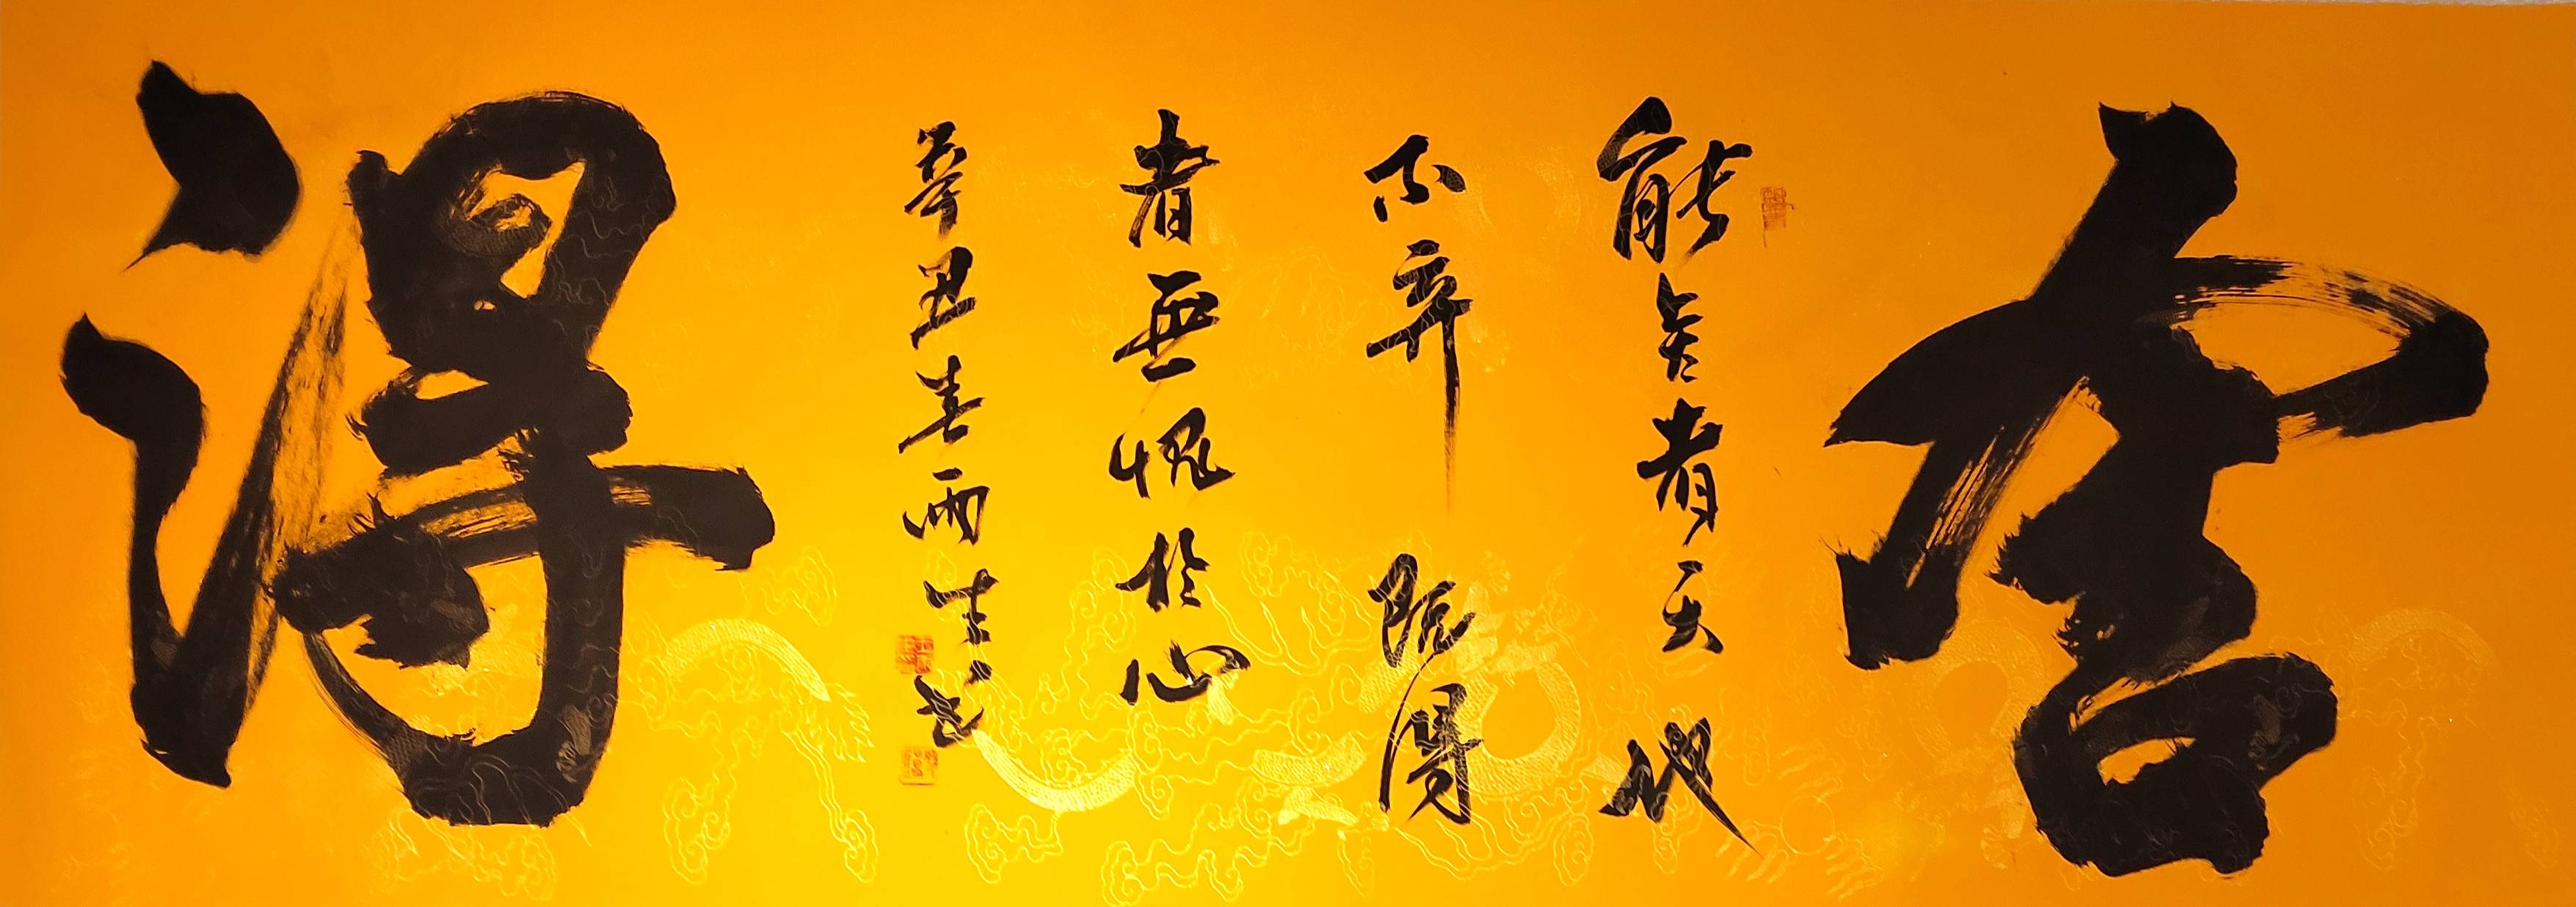 舍
能舍者天地
不弃既得
者無愧於心
辛丑春雨生书
得